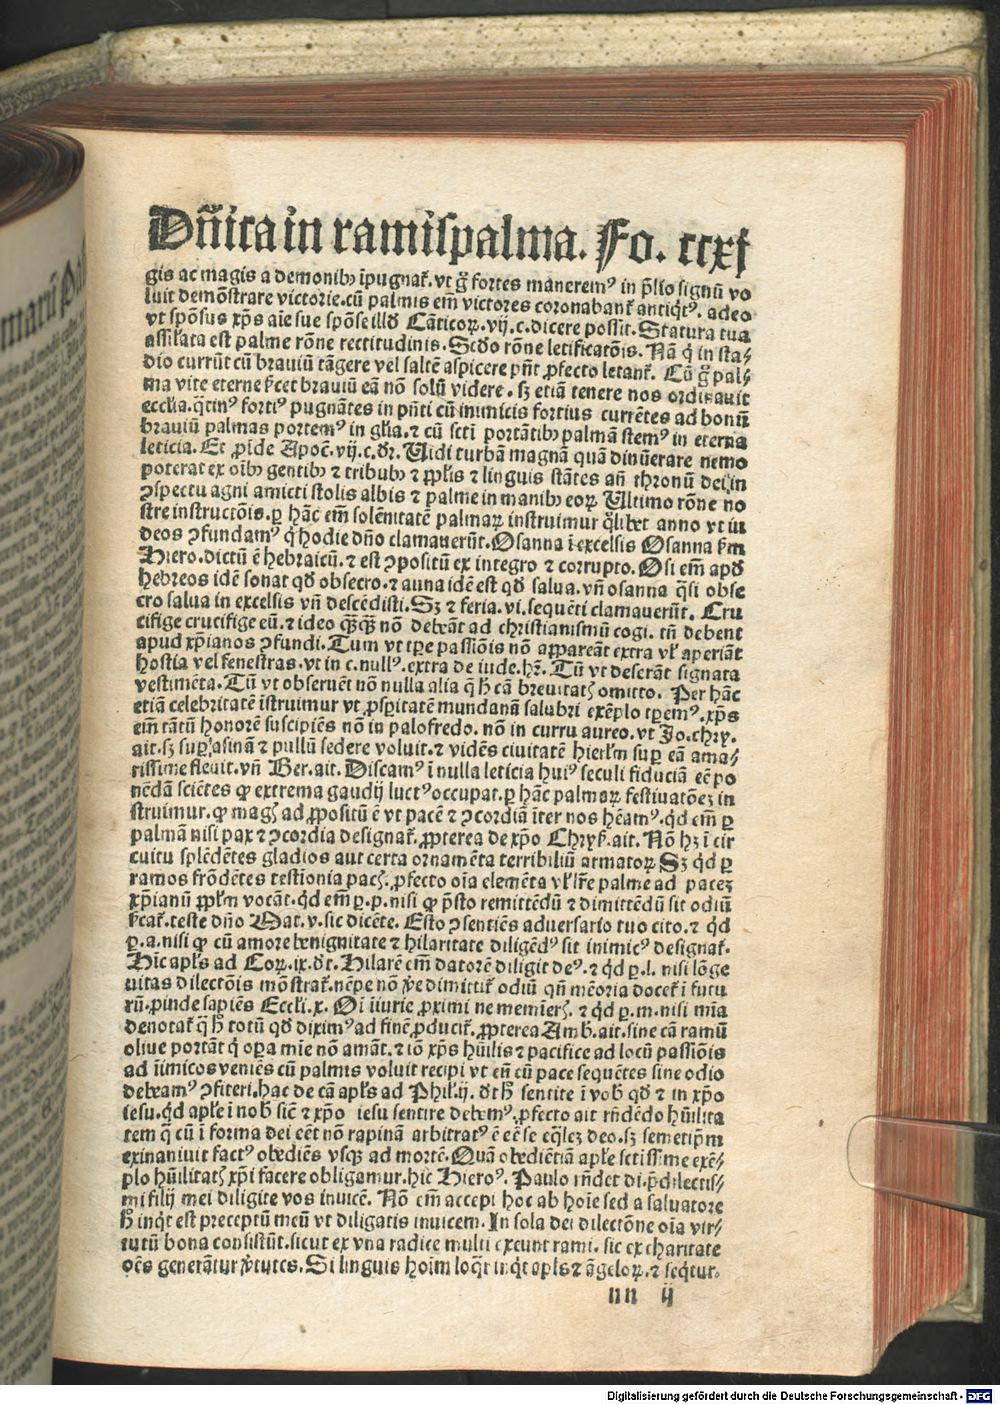 Dñica in ramispalma. Fo. ccxj
gis ac magis a demonibꝰ ĩpugnat̃. vt g̃ fortes manerem⁹ in p̃lio signũ vo
luit demõstrare victorie. cũ palmis em̃ victores coronabant̃ antiq̃t⁹. adeo
vt spõsus xp̃s aĩe sue spõse illđ Cãticoꝝ. vij. c. dicere possit. Statura tua
assil̃ata est palme rõne rectitudinis. Scđo rõne letificatõis. Nã q̃ in sta⸗
dio currũt cũ brauiũ tãgere vel saltẽ aspicere pñt ꝓfecto letant̃. Cũ g̃ pal⸗
ma vite eterne brauiũ eã nõ solũ videre. sꝫ etiã tenere nos ordinauit
ecclia. q̃tin⁹ forti⁹ pugnãtes in pñti cũ inimicis fortius currẽtes ad bonũ
brauiũ palmas portem⁹ in gl̃ia. ⁊ cũ scti portãtibꝰ palmã stem⁹ in eterna
leticia. Et ꝓide Apoc̃. vij. c. dr̃. Uidi turbã magnã quã dinũerare nemo
poterat ex oĩbꝰ gentibꝰ ⁊ tribubꝰ ⁊ pp̃lis ⁊ linguis stãtes añ thronũ dei ĩn
ꝯspectu agni amicti stolis albis ⁊ palme in manibꝰ eoꝝ Ultimo rõne no
stre instructõis. ꝑ hãc em̃ solẽnitatẽ palmaꝝ instruimur q̃libet anno vt iu
deos ꝯfundam⁹ q̃ hodie dño clamauerũt. Osanna ĩ excelsis Osanna
Hiero. dictũ ẽ hebraicũ. ⁊ est ꝯpositũ ex integro ⁊ corrupto. Osi em̃ apđ
hebreos idẽ sonat qđ obsecro. ⁊ anna idẽ est qđ salua. vñ osanna q̃si obse
cro salua in excelsis vñ descẽdisti. Sꝫ ⁊ feria. vi. sequẽti clamauerũt. Cru
cifige crucifige eũ. ⁊ ideo nõ debẽãt ad christianismũ cogi. tñ debent
apud xp̃ianos ꝯfundi. Tum vt tp̃e passiõis nõ appareãt extra vl̃ aperiãt
hostia vel fenestras. vt in c. null⁹. extra de iude. hr̃. Tũ vt deferãt signata
vestimẽta. Tũ vt obseruẽt nõ nulla alia q̃ cã breuitat omitto. Per hãc
etiã celebritatẽ ĩstruimur vt ꝓsp̃itatẽ mundanã salubri exẽplo tp̃em⁹. xp̃s
em̃ tãtũ honorẽ suscipiẽs nõ in palofredo. nõ in curru aureo. vt Jo. chrẏ.
ait. sꝫ sup̃ asinã ⁊ pullũ sedere voluit. ⁊ vidẽs ciuitatẽ hierl̃m sup̃ eã ama⸗
rissime fleuit. vñ Ber. ait. Discam⁹ ĩ nulla leticia hui⁹ seculi fiduciã eẽ po
nẽdã sciẽtes ꝙ extrema gaudij luct⁹ occupat. ꝑ hãc palmaꝝ festiuatõeꝫ in
struimur. ꝙ mag ad ꝓpositũ ẽ vt pacẽ ⁊ ꝯcordiã ĩter nos hẽam⁹. qđ em̃ ꝑ
palmã nisi pax ⁊ ꝯcordia designat̃. ꝓpterea de xp̃o Chrẏs. ait. Nõ hꝫ ĩ cir
cuitu splẽdẽtes gladios aut certa ornamẽta terribiliũ armatoꝝ Sꝫ qđ ꝑ
ramos frõdẽtes testionia pac. ꝓfecto oĩa elemẽta vl̃ lr̃e palme ad pacez
xp̃ianũ pp̃l̃m vocãt. qđ em̃ ꝑ. p. nisi ꝙ p̃sto remittẽdũ ⁊ dimittẽdũ sit odiũ
teste dño Mat. v. sic dicẽte. Esto ꝯsentiẽs aduersario tuo cito. ⁊ qđ
ꝑ. a. nisi ꝙ cũ amore benignitate ⁊ hilaritate diligẽd⁹ sit inimic⁹ designat̃.
Hĩc apl̃s ad Coꝝ. ix. đt. Hilarẽ em̃ datorẽ diligit de⁹. ⁊ qđ ꝑ. l. nisi lõge
uitas dilectõis mõstrat̃. nẽpe nõ dimittit̃ odiũ qñ mẽoria docet̃ ĩ futu
rũ. ꝓinde sapiẽs Eccl̃i. x. Oi ĩiurie ꝓximi ne memĩer. ⁊ qđ ꝑ. m. nisi mĩa
denotat̃ q̃ totũ qđ dixim⁹ ad finẽ ꝓducit̃. ꝓpterea Amb. ait. sine cã ramũ
oliue portãt q̃ oꝑa mĩe nõ amãt. ⁊ iõ xp̃s hũilis ⁊ pacifice ad locũ passiõis
ad ĩimicos veniẽs cũ palmis voluit recipi vt eũ cũ pace sequẽtes sine odio
debeam⁹ ꝯfiteri. hac de cã apl̃s ad Phil̃. ij. sentite ĩ vob qđ ⁊ in xp̃o
iesu. qđ apl̃e ĩ nob sic̃ ⁊ xp̃o iesu sentire debem⁹. ꝓfecto ait rñdẽdo hũilita
tem q̃ cũ ĩ forma dei eẽt nõ rapinã arbitrat⁹ ẽ eẽ se eq̃lez deo. sꝫ semetip̃m
exinaniuit fact⁹ obediẽs vsqꝫ ad mortẽ. Quã obediẽtiã apl̃e sctissime exẽ⸗
plo hũilitat xp̃i facere obligamur. hĩc Hiero⁹. Paulo rñdet di. p̃dilectis⸗
mi filij mei diligite vos inuicẽ. Nõ em̃ accepi hoc ab hoĩe sed a saluatore
inq̃t est preceptũ meũ vt diligatis inuicem. In sola dei dilectõne oĩa vir⸗
tutũ bona consistũt. sicut ex vna radice multi exeunt rami. sic ex charitate
oẽs generãtur . Si linguis hoĩm loq̃r inq̃t apl̃s ⁊ ãgeloꝝ. ⁊ seq̃tur.
nn ij
Digitalisierung gefördert durch die Deutsche Forschungsgemeinschaft - DFG